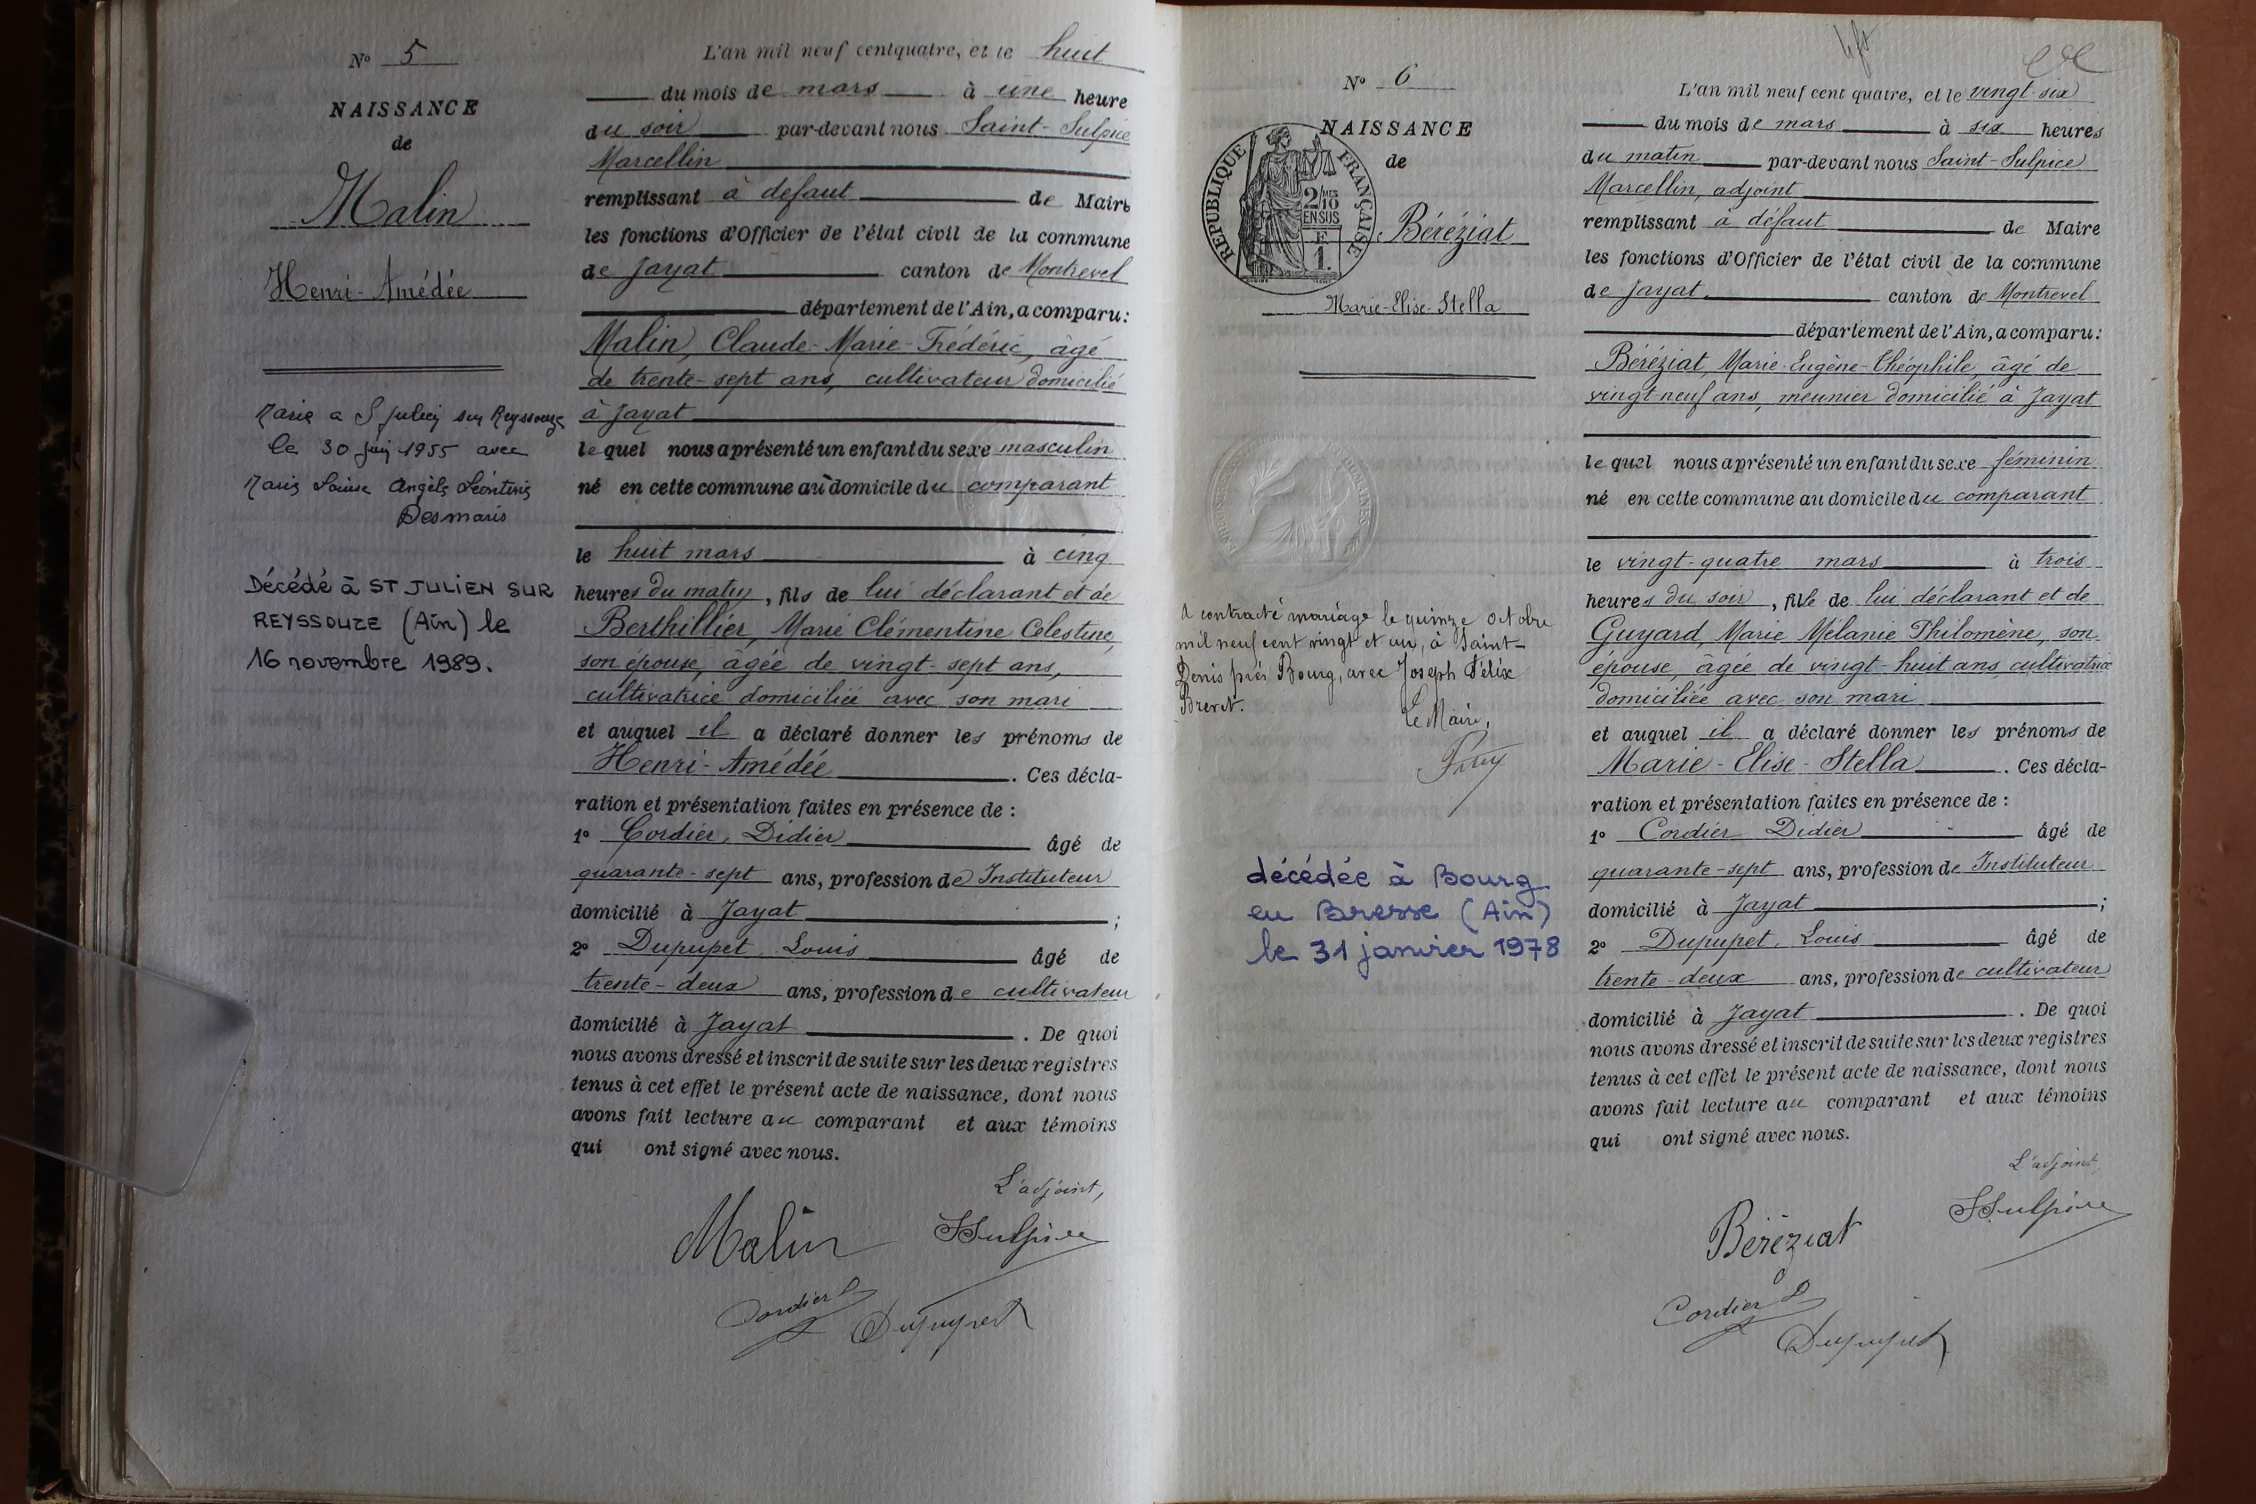 N° 5
NAISSANCE
de
Malin
Henri-Amédée
Marié a St Julien sur Reyssouze
le 30 juin 1955 avec
Marie Louise Angèle Léontine
Desmaris
Décédé à ST JULIEN SUR
REYSSOUZE (Ain) le
16 novembre 1989.
L'an mil neuf cent quatre, et le huit
du mois de mars à une heure
du soir par-devant nous Saint-Sulpice
Marcellin
remplissant à défaut de Maire
les fonctions d'Officier de l'état civil de la commune
de Jayat canton de Montrevel
département de l'Ain, a comparu:
Malin, Claude-Marie-Frédéric, âgé
de trente-sept ans, cultivateur domicilié
à Jayat
lequel nous a présenté un enfant du sexe masculin
né en cette commune au domicile du comparant
le huit mars à cinq
heures du matin, fils de lui déclarant et de
Berthillier, Marie Clémentine Célestine,
son épouse, âgée de vingt-sept ans,
cultivatrice domiciliée avec son mari
et auquel il a déclaré donner les prénoms de
Henri-Amédée. Ces décla-
ration et présentation faites en présence de :
1° Cordier, Didier âgé de
quarante-sept ans, profession de Instituteur
domicilié à Jayat ;
2° Dupupet, Louis âgé de
trente-deux ans, profession de cultivateur
domicilié à Jayat. De quoi
nous avons dressé et inscrit de suite sur les deux registres
tenus à cet effet le présent acte de naissance, dont nous
avons fait lecture au comparant et aux témoins
qui ont signé avec nous.
L'adjoint,
Malin SSulpice
Cordier D Dupupet
N° 6
NAISSANCE
de
REPUBLIQUE FRANÇAISE
2/10
EN SUS
F.
1.
Béréziat
Marie-Elise-Stella
A contracté mariage le quinze octobre
mil neuf cent vingt et un, à Saint-
Denis près Bourg, avec Joseph Félix
Brevet.
Le Maire,
décédée à Bourg
en Bresse (Ain)
le 31 janvier 1978
L'an mil neuf cent quatre, et le vingt-six
du mois de mars à six heures
du matin par-devant nous Saint-Sulpice
Marcellin, adjoint
remplissant à défaut de Maire
les fonctions d'Officier de l'état civil de la commune
de Jayat canton de Montrevel
département de l'Ain, a comparu:
Béréziat, Marie-Eugène-Théophile, âgé de
vingt-neuf ans, meunier domicilié à Jayat
lequel nous a présenté un enfant du sexe féminin
né en cette commune au domicile du comparant
le vingt-quatre mars à trois
heures du soir, fille de lui déclarant et de
Guyard, Marie Mélanie Philomène, son
épouse, âgée de vingt-huit ans, cultivatrice
domiciliée avec son mari
et auquel il a déclaré donner les prénoms de
Marie-Elise-Stella. Ces décla-
ration et présentation faites en présence de :
1° Cordier Didier âgé de
quarante-sept ans, profession de Instituteur
domicilié à Jayat ;
2° Dupupet, Louis âgé de
trente-deux ans, profession de cultivateur
domicilié à Jayat. De quoi
nous avons dressé et inscrit de suite sur les deux registres
tenus à cet effet le présent acte de naissance, dont nous
avons fait lecture au comparant et aux témoins
qui ont signé avec nous.
L'adjoint,
Béréziat SSulpice
Cordier D
Dupupet